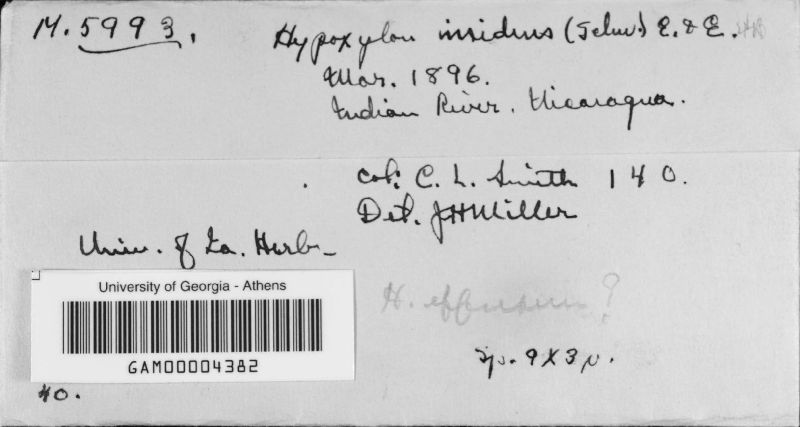 M. 5993.
Hypoxylon insidens (Schw.) E. & E.
Mar. 1896.
Indian River. Nicaragua.
Col: C. L. Smith 140.
Det. JHMiller
Univ. of Ia. Herb.
University of Georgia - Athens
GAM00004382
H. effusum?
Sp. 9 X 3 µ.
40.